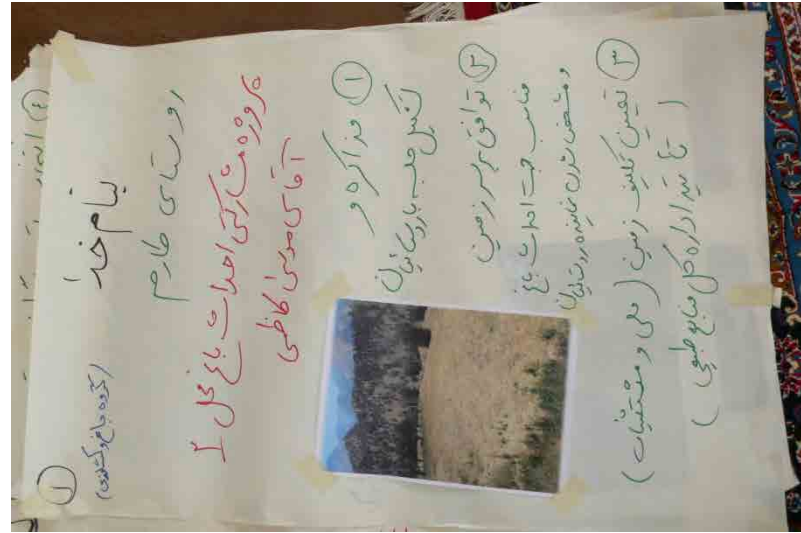 ۱
بنام خدا
(گروه باغ و کشاورزی)
روستای طارم
پروژه مشارکتی احداث باغ محل ۲
آقای موسی کاظمی
۱ مذاکره و
تشکیل جلسه با روستائیان
۲ توافق بر سر زمین
مناسب جهت احداث باغ
و مشخص شدن نماینده روستائیان
۳ تعیین تکلیف زمین (ملی و مستثنیات)
(تائید اداره کل منابع طبیعی)